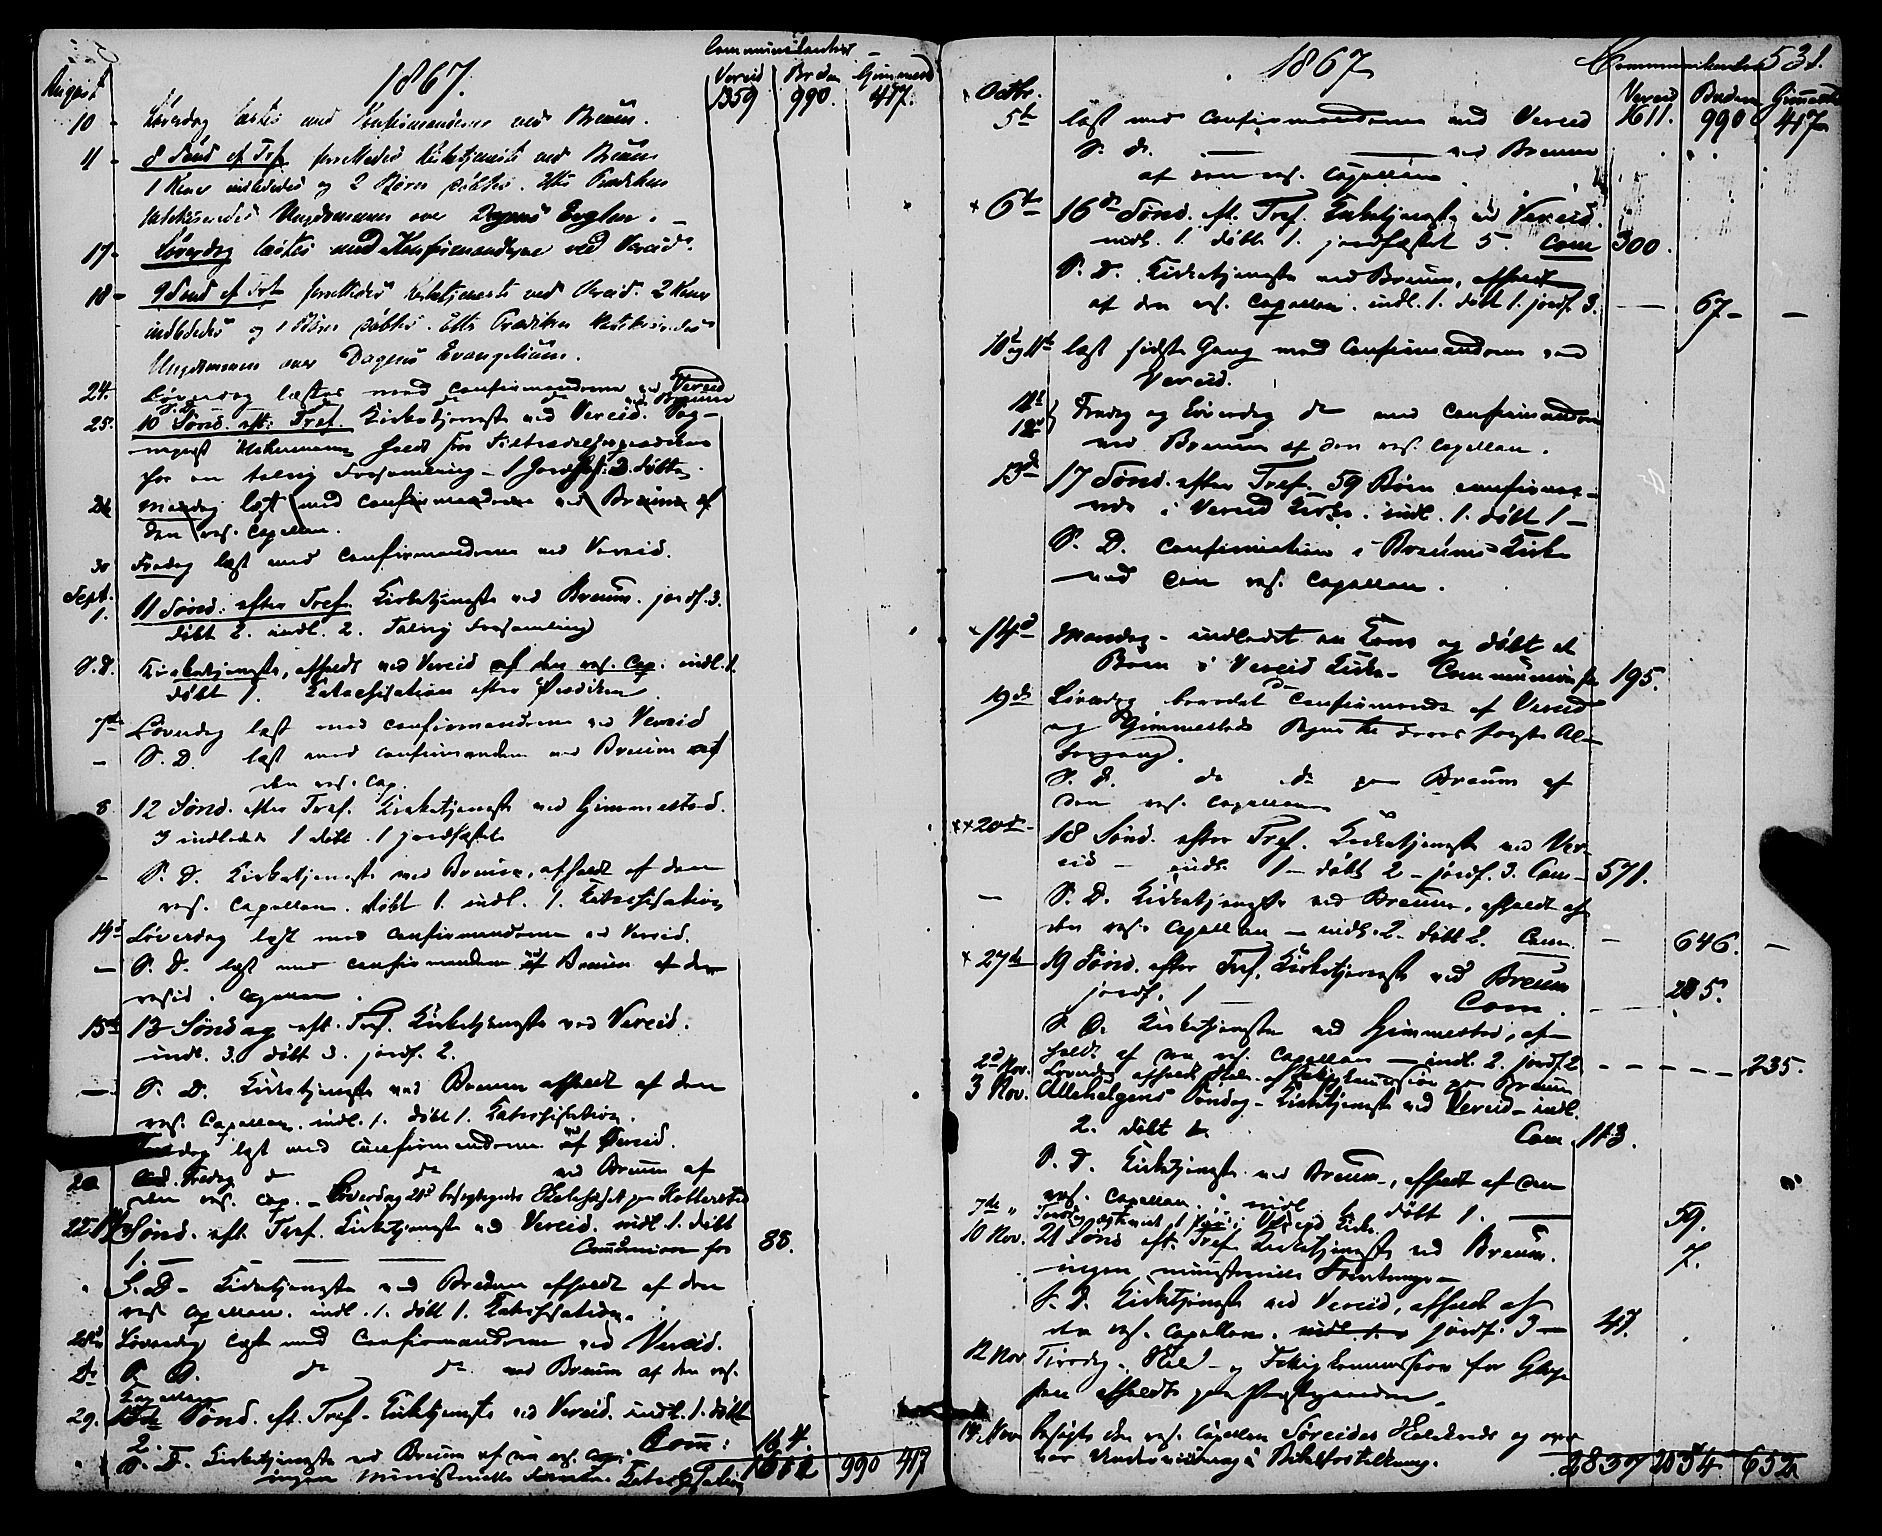 1867.
Communicanter
August
Vereid Bredm Gimmestd
1359 990. 417.
10 - Løverdag læstes med Konfirmanderne ved Breum.
11 - 8 Sønd ef Tref. forrettedes Kirketjeneste ved Breum
1 Kone indledes og 2 Børn døbtes. Efter Prædiken
katekiseredes Ungdommen over Dagens Evglm.
17 - Løverdag læstes med Konfirmanderne ved Vereid.
18 - 9 Sønd ef Tref forrettedes Kirketjeneste ved Vereid. 2 Koner
indledes og 1 Børn døbtes. Efter Prædiken katekiseredes
Ungdommen over Dagens Evangelium.
24. Løverdag læstes med Confirmanderne ved Vereid
S. D. do do ved Breum
25. 10 Sønd. eft. Tref. Kirketjeneste ved Vereid. Sog-
nepræst holdt sin Tiltrædelsesprædiken
for en talrig Forsamling - 1 Jordfæst. 2 døbte.
26 Mandag læst med Confirmanderne ved Breum af
den res. Capellan.
30 Fredag læst med Confirmanderne ved Vereid.
Sept.
1. 11 Sønd. efter Tref. Kirketjeneste ved Breum. jordf. 3.
døbt 2. indl. 2. Talrig Forsamling
S. D. Kirketjeneste, afholdt ved Vereid af den res. Cap. indl. 1.
døbt 1. Katechisation efter Prædiken
7de Løverdag læst med Confirmanderne ved Vereid
- S. D. læst med Confirmanderne ved Breum af
den res. Cap.
8. 12 Sønd. efter Tref. Kirketjeneste ved Gimmestad.
3 indledede 1 døbt. 1 jordfæstet
- S. D. Kirketjeneste ved Breum, afholdt af den
res. Capellan. døbt 1. indl. 1. Katechisation
14d Løverdag læst med Confirmanderne ved Vereid.
- S. D. læst med Confirmanderne ved Breum af den
resid. Capellan.
15de 13 Søndag eft. Tref. Kirketjeneste ved Vereid.
indl. 3. døbt 3. jordf. 2.
- S. D. Kirketjeneste ved Breum afholdt af den
res. Capellan. indl. 1. døbt 1. Katechisation.
læst med Confirmanderne ved Vereid.
20 Fredag do do ved Breum af
den res. Cap. - Løverdag 21d
22 14 Sønd. eft. Tref. Kirketjeneste ved Vereid. indl. 1. døbt
1. - Communion for 88.
S. D - Kirketjeneste ved Bredem afholdt af den
res. Capellan. indl. 1. døbt 1. Katechisation.
28de Løverdag læst med Confirmanderne ved Vereid.
Do S. D. do do ved Breum af den res.
Capellan
29. 15de Sønd. eft. Tref. Kirketjeneste ved Vereid. indl. 1. døbt
2. Com: 164.
S. D. Kirketjeneste ved Breum af den res. Cap.
ingen Ministerielle Katechisation
1611 990 417
1867
Communicanter 531.
Octbr. Vereid Bredm Gimmestd
5te læst med Confirmanderne ved Vereid 1611. 990 417
S. D. - - ved Breum
af den res. Capellan
6te 16de Sønd. eft. Tref. Kirketjeneste ved Vereid.
indl. 1. døbt 1. jordfæstet 5. Com 300.
S. D. Kirketjeneste ved Breum, afholdt
af den res. Capellan. indl. 1. døbt 1. jordf. 3. - 67 -
10 og 11te læst sidste Gang med Confirmanderne ved
Vereid.
11te 12te Fredag og Løverdag do med Confirmanderne
ved Breum af den res. Capellan.
13de 17 Sønd. efter Tref. 59 Børn confirme-
rede i Vereid Kirke. indl. 1. døbt 1 -
S. D. Confirmation i Breums Kirke
ved den res. Capellan.
14d Mandag - indledet en Kone og døbt et
Barn i Vereid Kirke - Communion for 195.
19de Løverdag Confirmerede af Vereid
og Gimmestads Sogne til deres første Al-
tergang.
S. D. do do paa Breum af
den res. Capellan
20de - 18 Sønd. efter Tref. Kirketjeneste ved Ver-
eid - indl. 1 - døbt 2 - jordf. 3. Com - 571.
- S. D. Kirketjeneste ved Breum, afholdt af
den res. Capellan - indl. 2. døbt 2. Com. - 646. -
27de 19 Sønd. efter Tref. Kirketjeneste ved Breum
jordf. 1 - Com. - 285.
S. D. Kirketjeneste ved Gimmestad, af-
holdt af den res. Capellan - indl. 2. jordf. 2 - 235.
2d Nov. Løverdag afholdt paa Breum
3 Nov. Allehelgens Søndag - Kirketjeneste ved Vereid - indl.
2. døbt Com. 113.
S. D. Kirketjeneste ved Breum, afholdt af den
res. Capellan. indl. døbt 1. - 59.
7de " Torsdag i Vereid Kirke.
10 Nov. 21 Sønd eft. Tref. Kirketjeneste ved Breum. 7.
ingen ministerielle Forretninger -
S. D. Kirketjeneste ved Vereid, afholdt af
den res. Capellan. jordf. 3 - 47.
12 Nov Tirsdag. Skole- og Fattigkommission for
afholdt paa Præstegaarden.
14. Nov besøgte den res. Capellan Søreides Skolekreds og over-
var Underviisning i
2837 2054 652